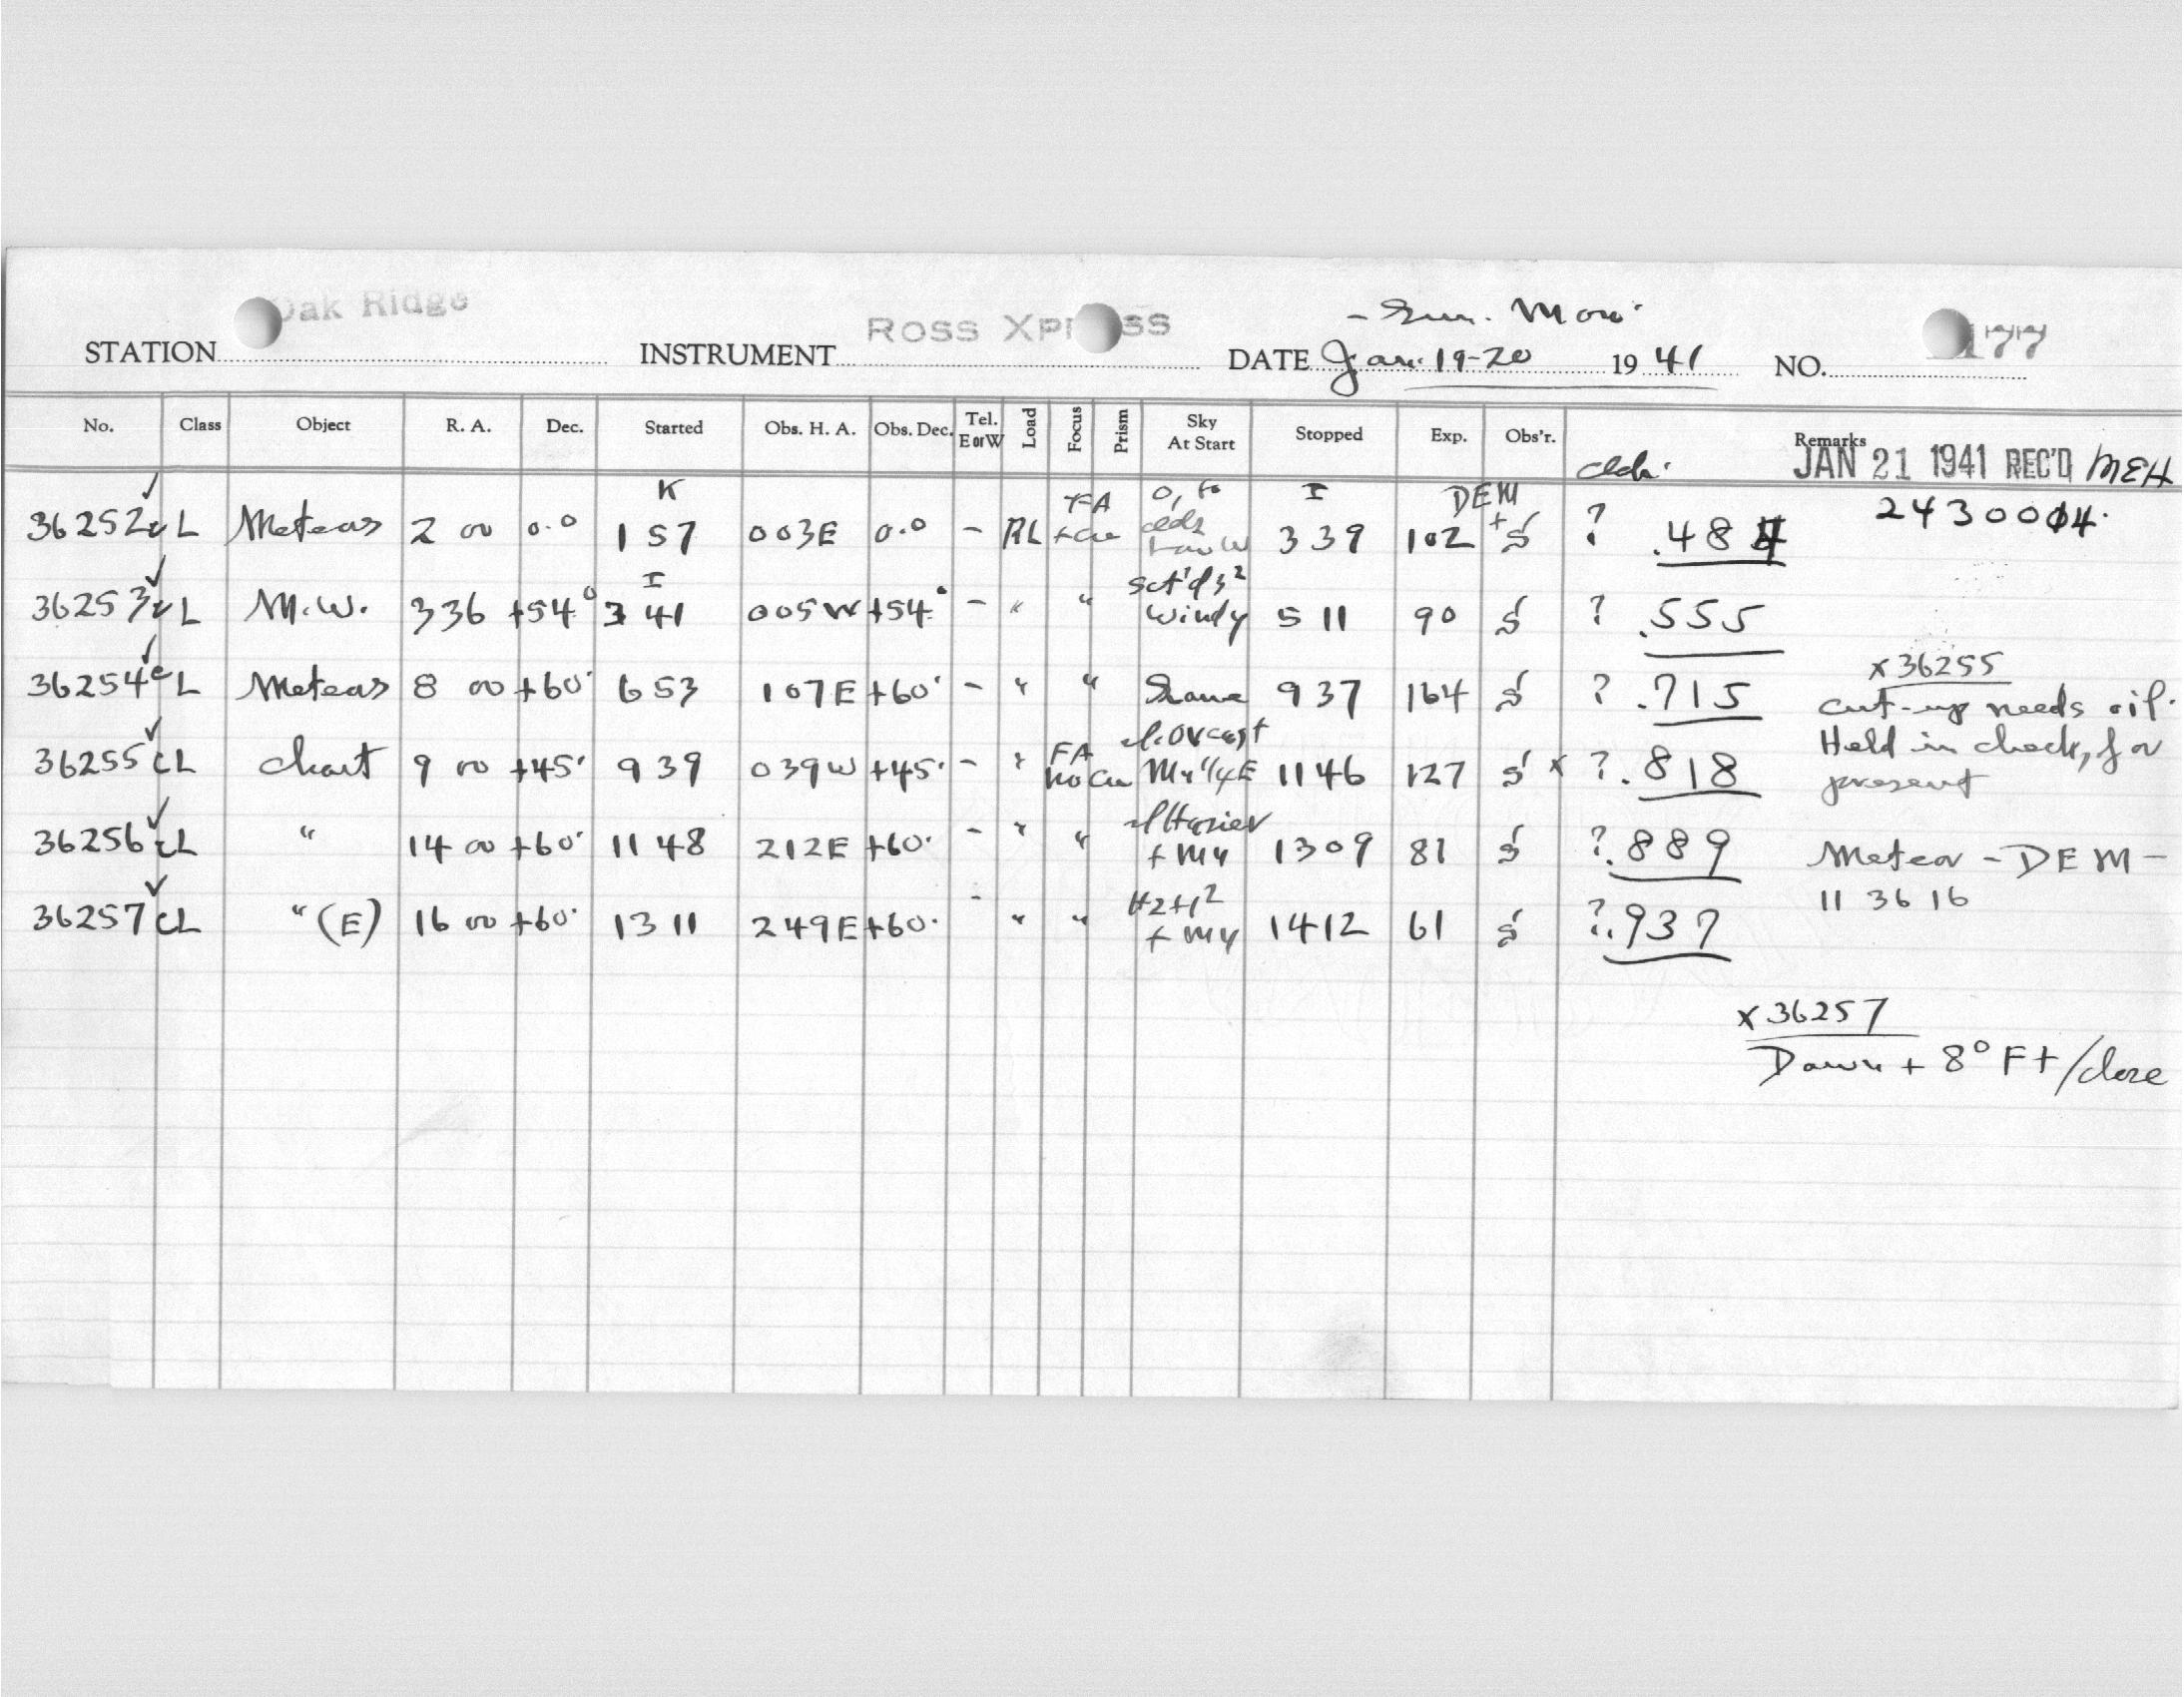 Oak Ridge ROSS XPRESS - Sun. Mon. 177
STATION INSTRUMENT DATE Jan. 19-20 19 41 NO.
No. Class Object R. A. Dec. Started Obs. H. A. Obs. Dec. Tel. E or W Load Focus Prism Sky At Start Stopped Exp. Obs'r. Remarks
JAN 21 1941 REC'D MEH
K FA 0, to I DEM 2430014.
36252 L Meteors 2 00 0.0 1 57 003E 0.0 - RL clds low W 339 102 + S ? .484
I Sct'd 3²
36253 L M.W. 336 +54° 341 005W +54° - " " Windy 5 11 90 S ? .555
x36255
36254 c L Meteors 8 00 +60° 653 107E +60° - " " Same 937 164 S ? .715 cut-up needs oil.
FA Held in check, for
36255 c L Chart 9 00 +45° 939 039W +45° - " no Cu 1146 127 S x ? .818 present
36256 c L " 14 00 +60° 11 48 212E +60° - " " + My 1309 81 S ? .889 Meteor - DEM -
11 36 16
36257 c L " (E) 16 00 +60° 13 11 249E +60° - " " + My 1412 61 S ? .937
x36257
Dawn + 8° F + / close